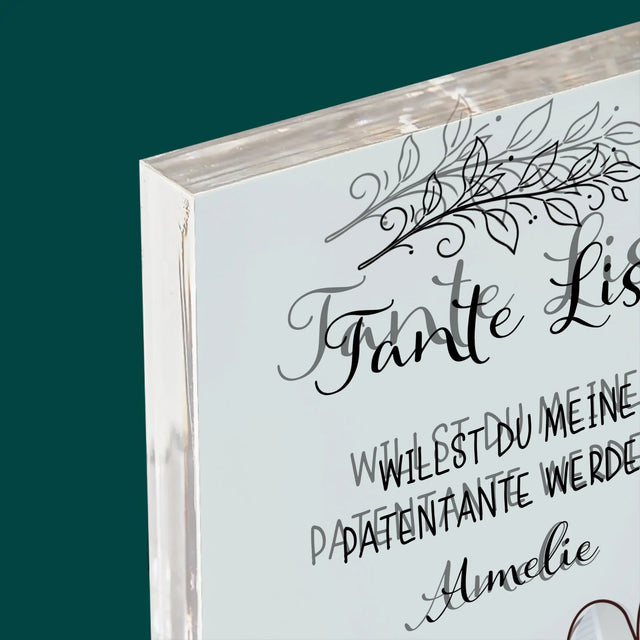 Tante Lis
WILLST DU MEINE
PATENTANTE WERDE
Amelie